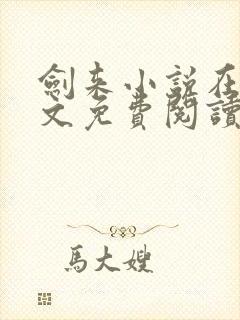 劍来小説在
文免費閱讀
馬大嫂